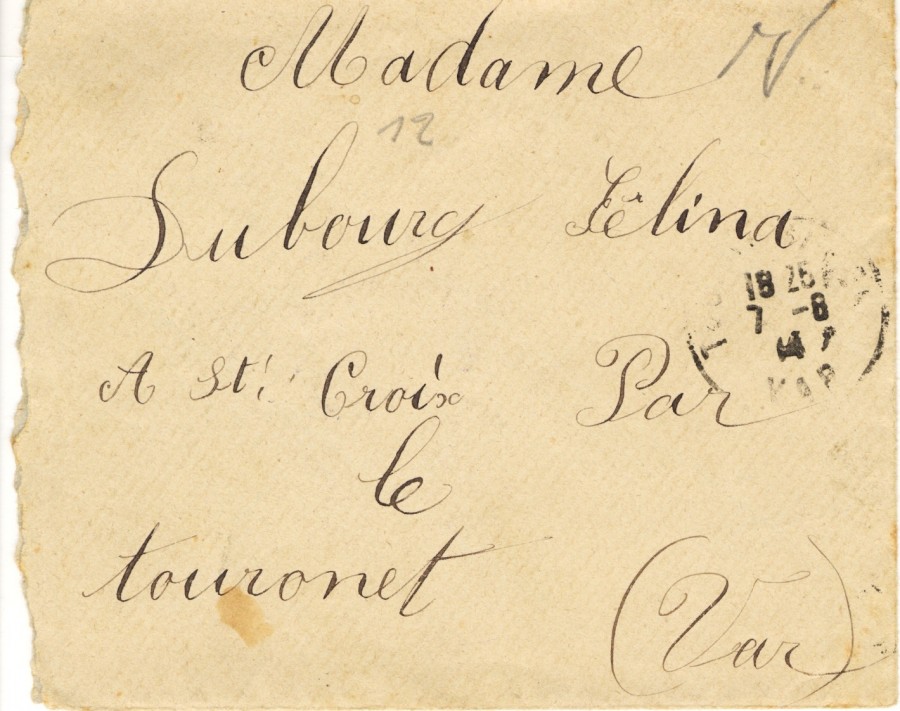 Madame
12
Dubourg Félina
A St. Croix Par
le
touronet (Var)
18 25
7 -8
VAR